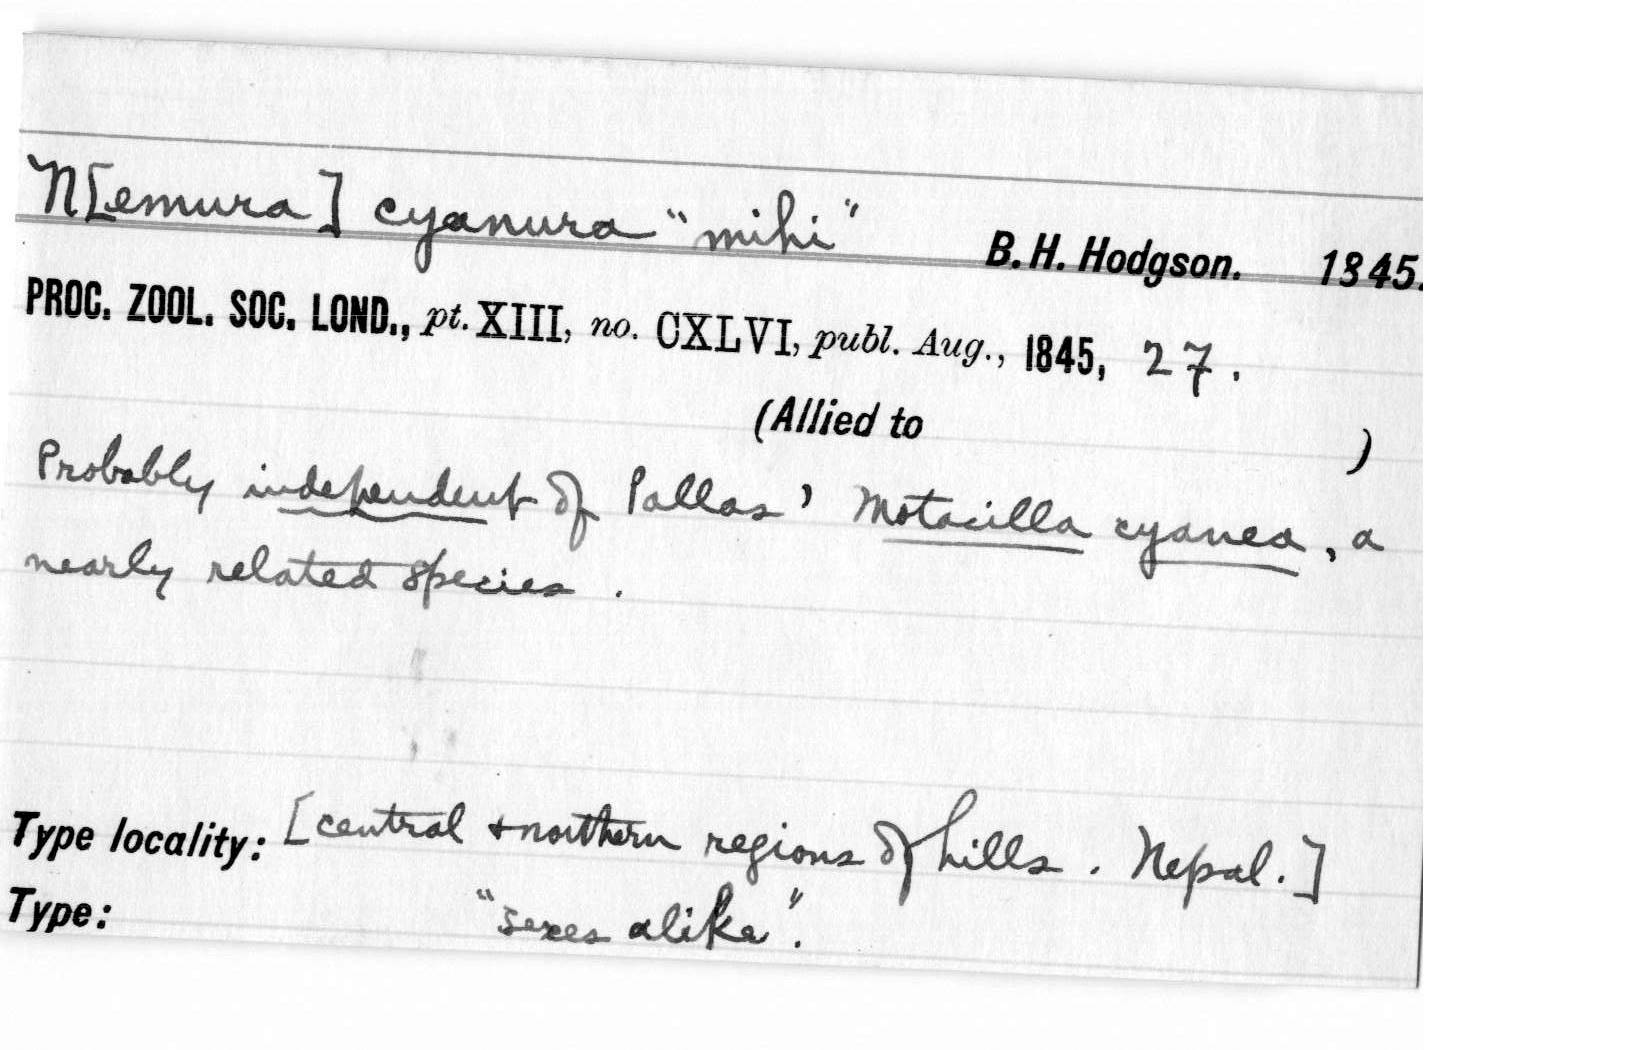 N[emura] cyanura "mihi" B. H. Hodgson. 1845.
PROC. ZOOL. SOC. LOND., pt. XIII, no. CXLVI, publ. Aug., 1845, 27.
(Allied to )
Probably independent of Pallas' Motacilla cyanea, a
nearly related species.
Type locality: [central + northern regions of hills. Nepal.]
Type: "sexes alike".